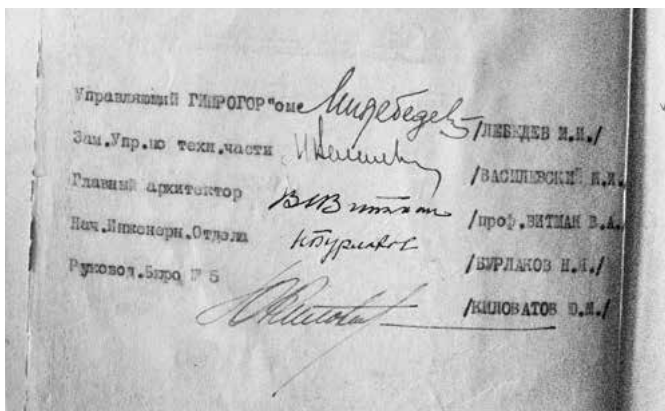 Управляющий ГИПРОГОР"оме /ЛЕБЕДЕВ И.И./
Зам.Упр.по техн.части /ВАСИЛЕВСКИЙ И.И.
Главный архитектор /проф.ВИТМАН В.А.
Нач.Инженерн.Отдела Бурлаков /БУРЛАКОВ Н.Я./
Руковод.Бюро № 5 /КИЛОВАТОВ Ю.М./